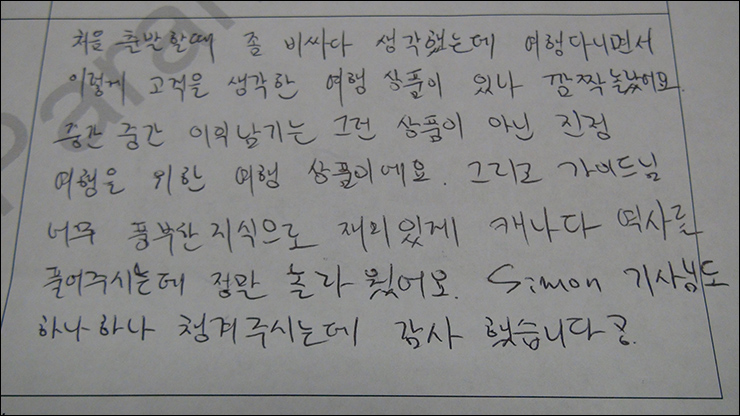 처음 출발할때 좀 비싸다 생각했는데 여행다니면서
이렇게 고객을 생각한 여행 상품이 있나 깜짝놀랐어요.
중간 중간 이익남기는 그런 상품이 아닌 진정
여행을 위한 여행 상품이에요. 그리고 가이드님
너무 풍부산 지식으로 재미있게 캐나다 역사를
풀어주시는데 정말 놀라웠어요. Simon 기사님도
하나하나 청겨주시는데 감사 했습니다
Para